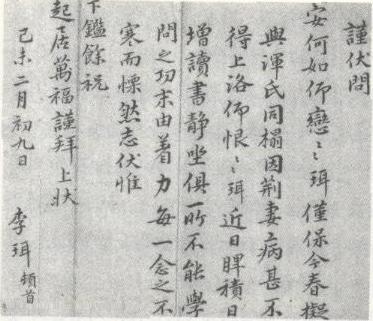 謹伏問
安何如仰戀〻珥僅保今春擬
與渾氏同榻因荊妻病甚不
得上洛仰恨〻珥近日脾積日
增讀書靜坐俱所不能學
問之功末由着力每一念之不
寒而慄然志伏惟
下鑑餘祝
起居萬福謹拜上狀
己未二月初九日 李珥頓首